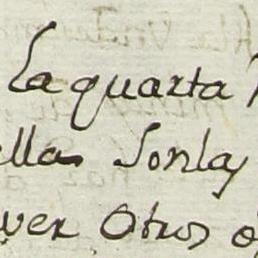 La quarta
ella Sonla
ver Otros